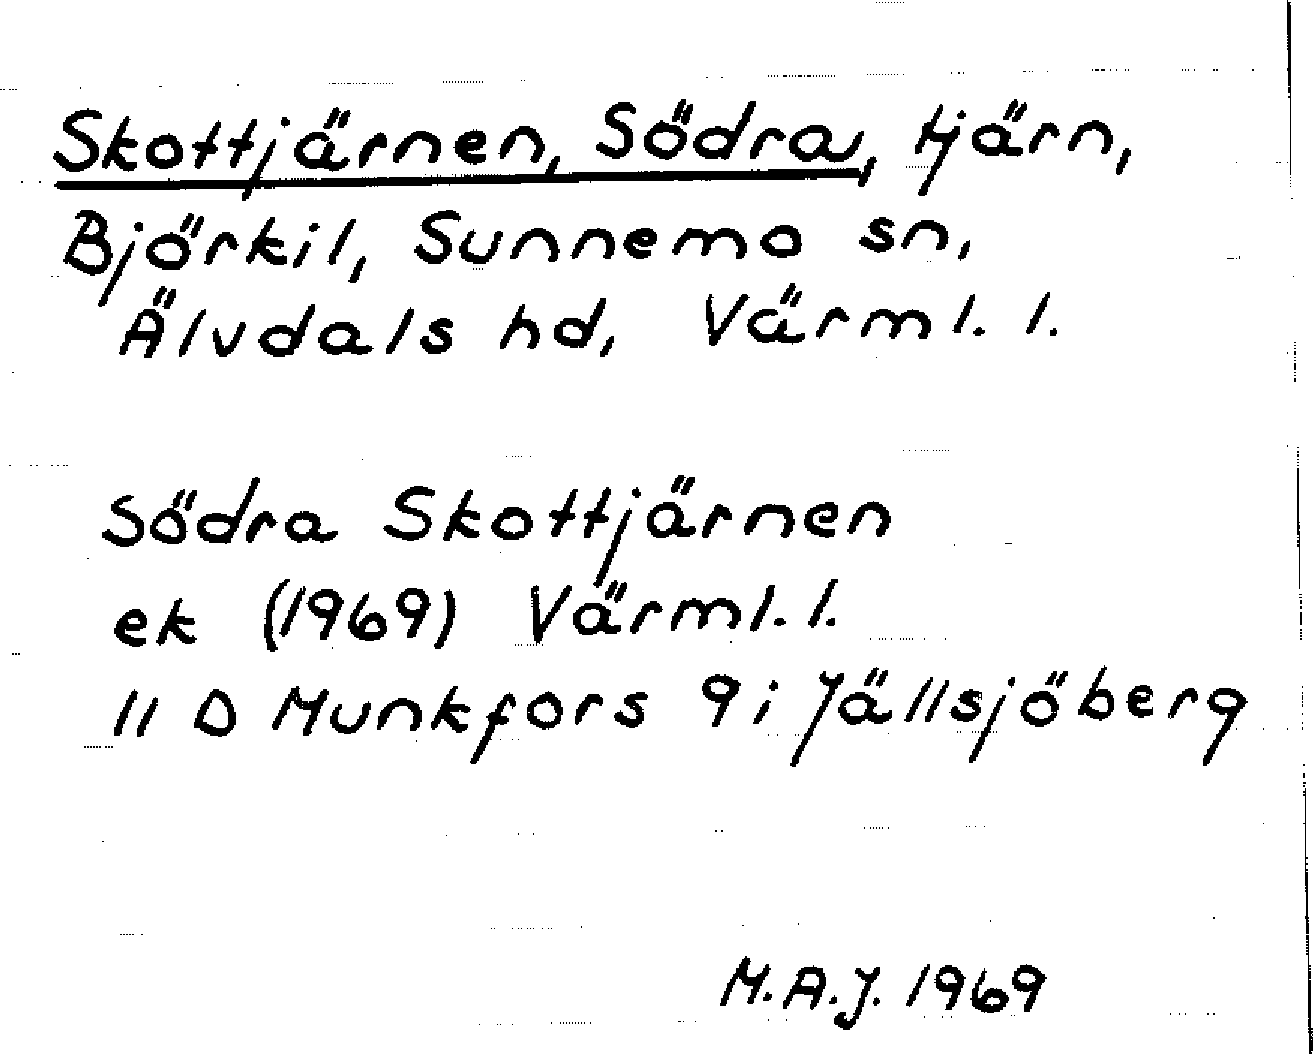 Skottjärnen, Södra, tjärn,
Björkil, Sunnemo sn,
Älvdals hd, Värml. l.
Södra Skottjärnen
ek (1969) Värml. l.
11 D Munkfors 9 i Jällsjöberg
M.A.J. 1969